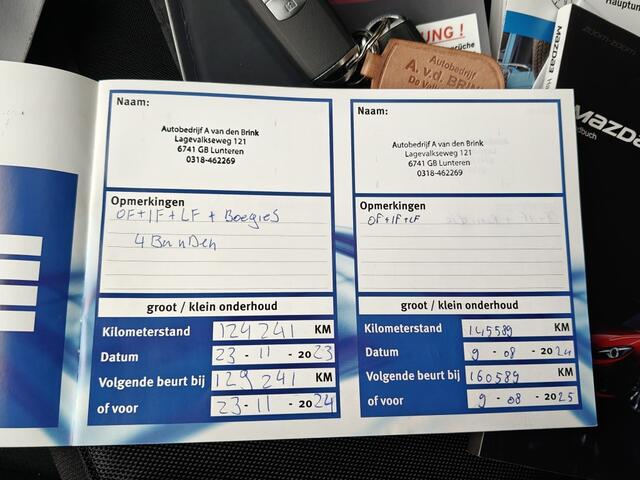 Hauptun
NUNG !
prüche
Autobedrijf
A. v.d. BRINK
Mazda3
zoom-zoom
mazda
dbuch
Naam:
Autobedrijf A van den Brink
Lagevalkseweg 121
6741 GB Lunteren
0318-462269
Opmerkingen
OF+IF+LF + BoegieS
4 BanDen
groot / klein onderhoud
Kilometerstand 124241 KM
Datum 23 - 11 - 2023
Volgende beurt bij 129241 KM
of voor 23 - 11 - 2024
Naam:
Autobedrijf A van den Brink
Lagevalkseweg 121
6741 GB Lunteren
0318-462269
Opmerkingen
OF+IF+LF
groot / klein onderhoud
Kilometerstand 145589 KM
Datum 9 - 08 - 2024
Volgende beurt bij 160589 KM
of voor 9 - 08 - 2025